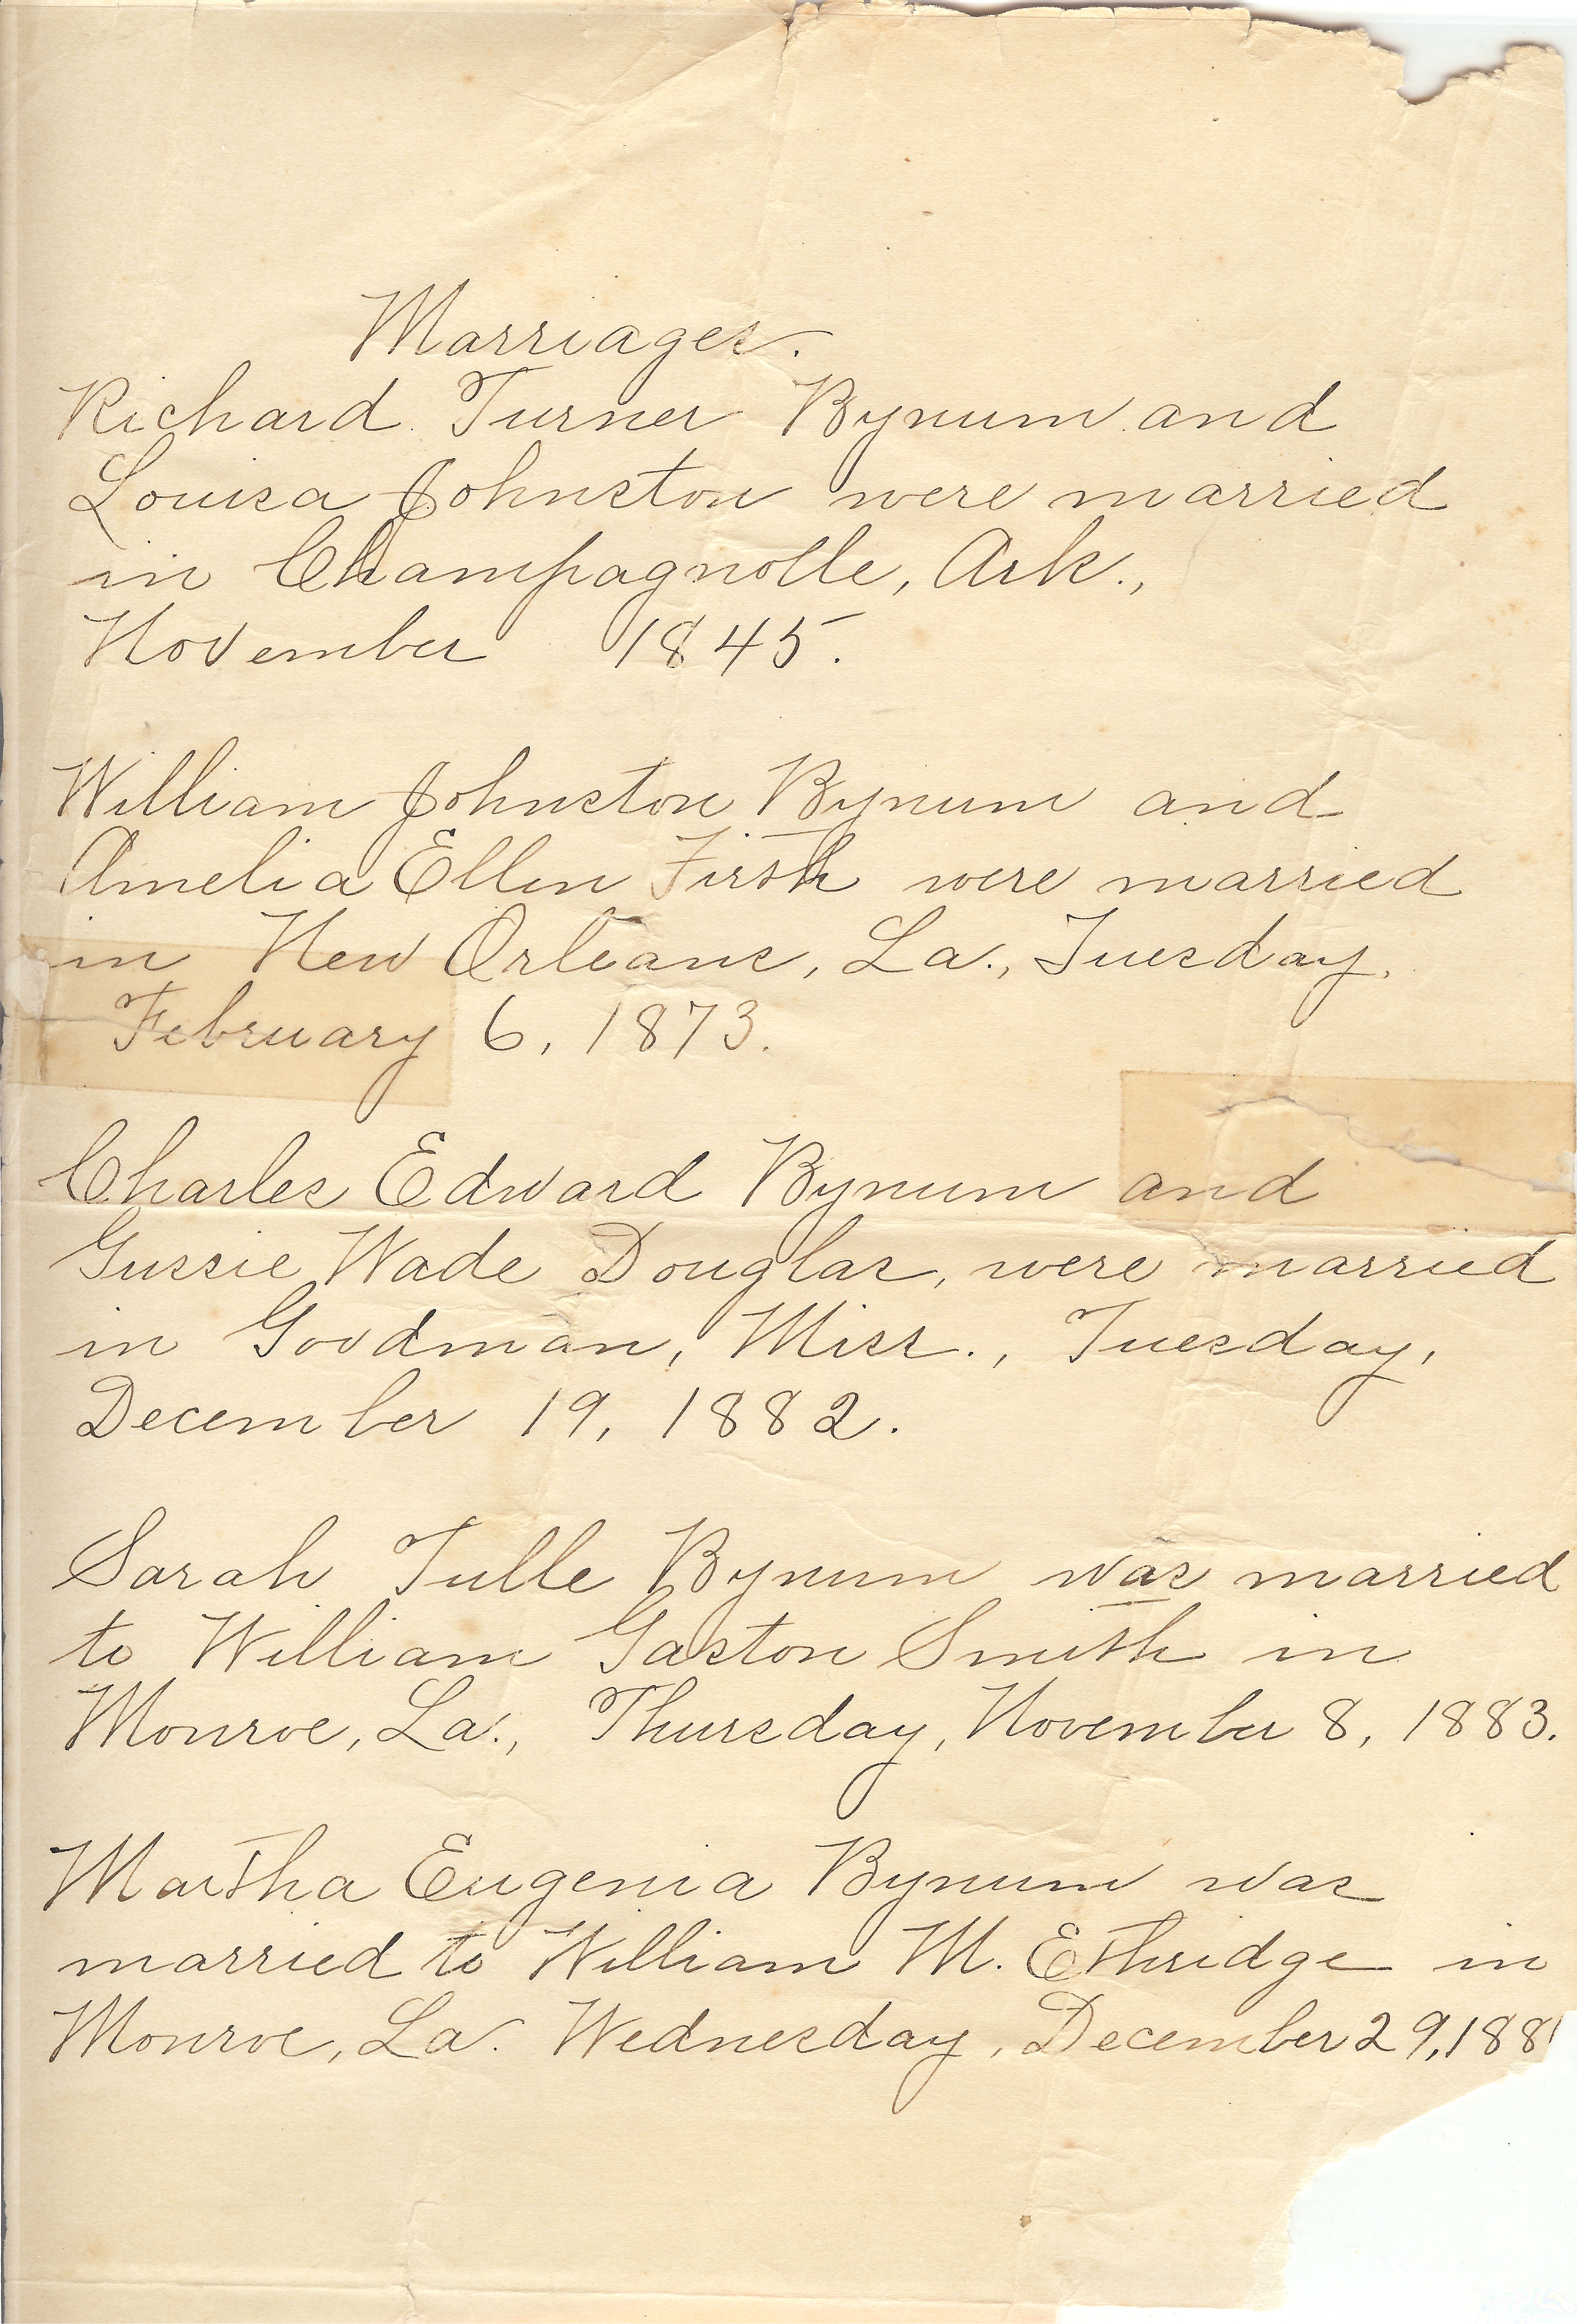 Marriages.
Richard Turner Bynum and
Louisa Johnston were married
in Champagnolle, Ark.,
November 1845.
William Johnston Bynum and
Amelia Ellen Firth were married
in New Orleans, La., Tuesday,
February 6, 1873.
Charles Edward Bynum and
Gussie Wade Douglas, were married
in Goodman, Miss., Tuesday,
December 19, 1882.
Sarah Tulle Bynum was married
to William Gaston Smith in
Monroe, La., Thursday, November 8, 1883.
Martha Eugenia Bynum was
married to William M. Ethridge in
Monroe, La. Wednesday, December 29,